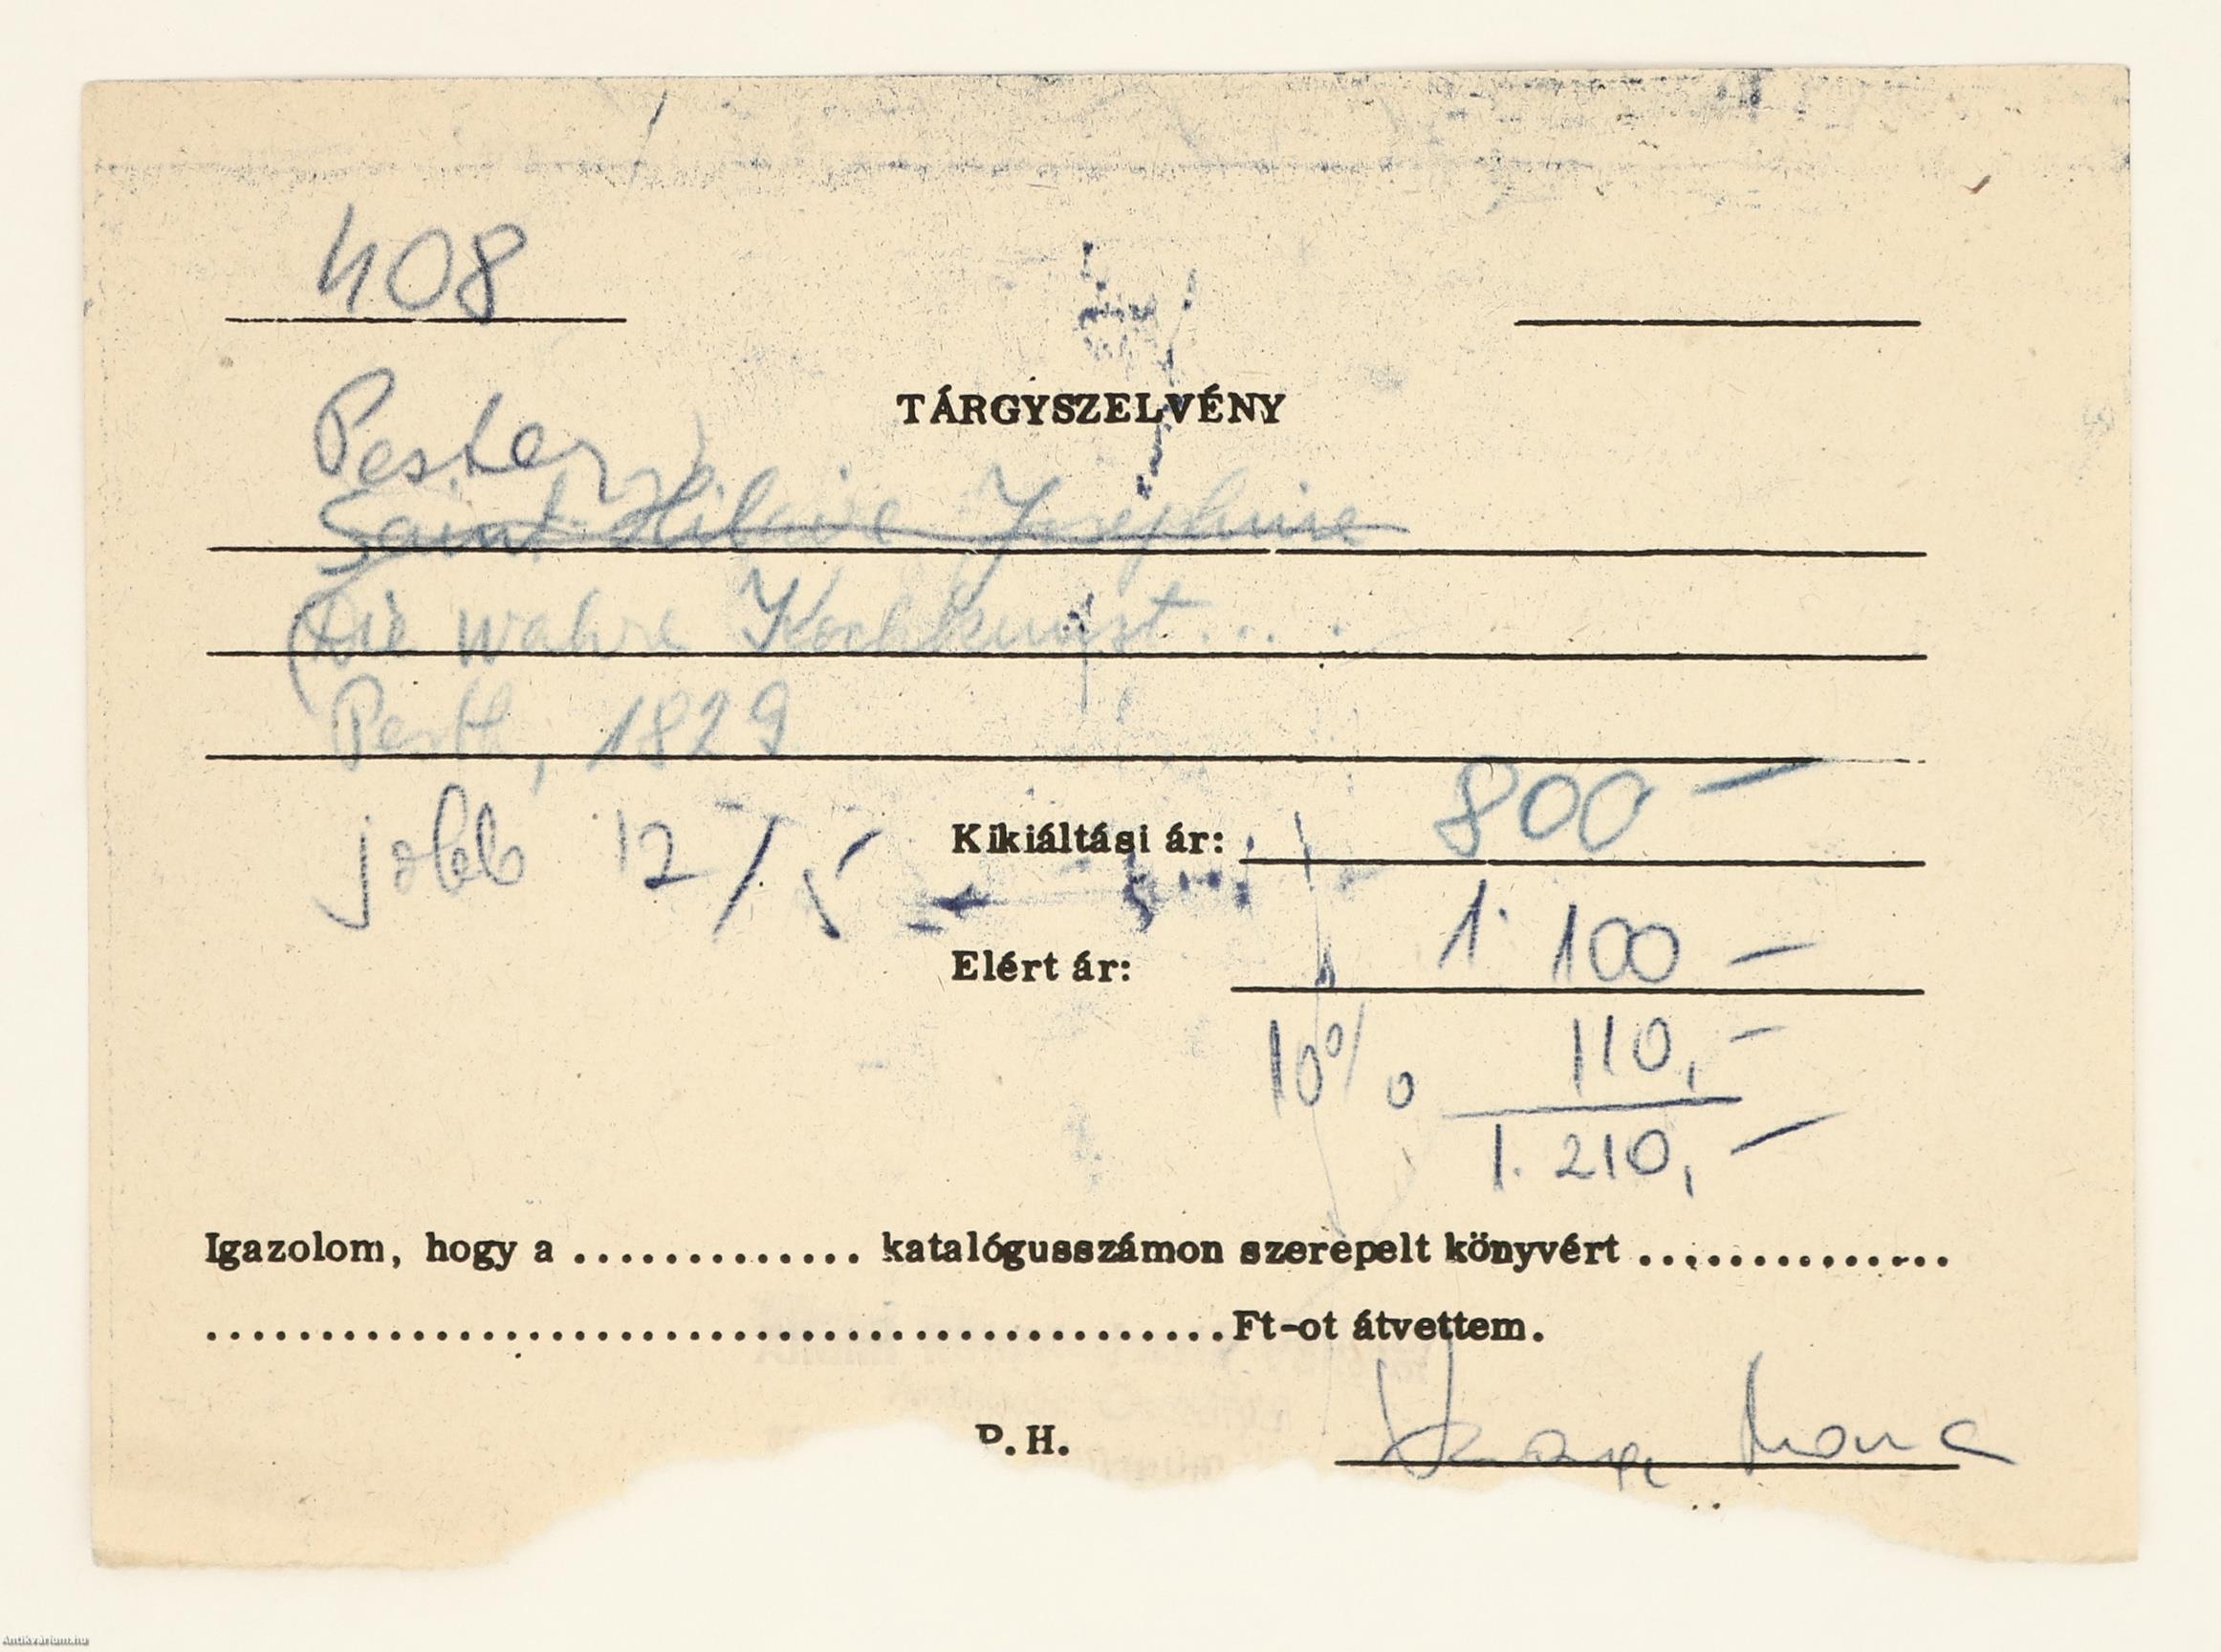 408
TÁRGYSZELVÉNY
Pester
Saint-Hilaire Josephine
(Die wahre Kochkunst...
Pesth, 1829
jobb 12/5
Kikiáltási ár: 800 –
Elért ár: 1.100 –
10% 110,–
1.210,–
Igazolom, hogy a ............. katalógusszámon szerepelt könyvért ..............
............................................. Ft-ot átvettem.
P.H.
Antikvarium.hu